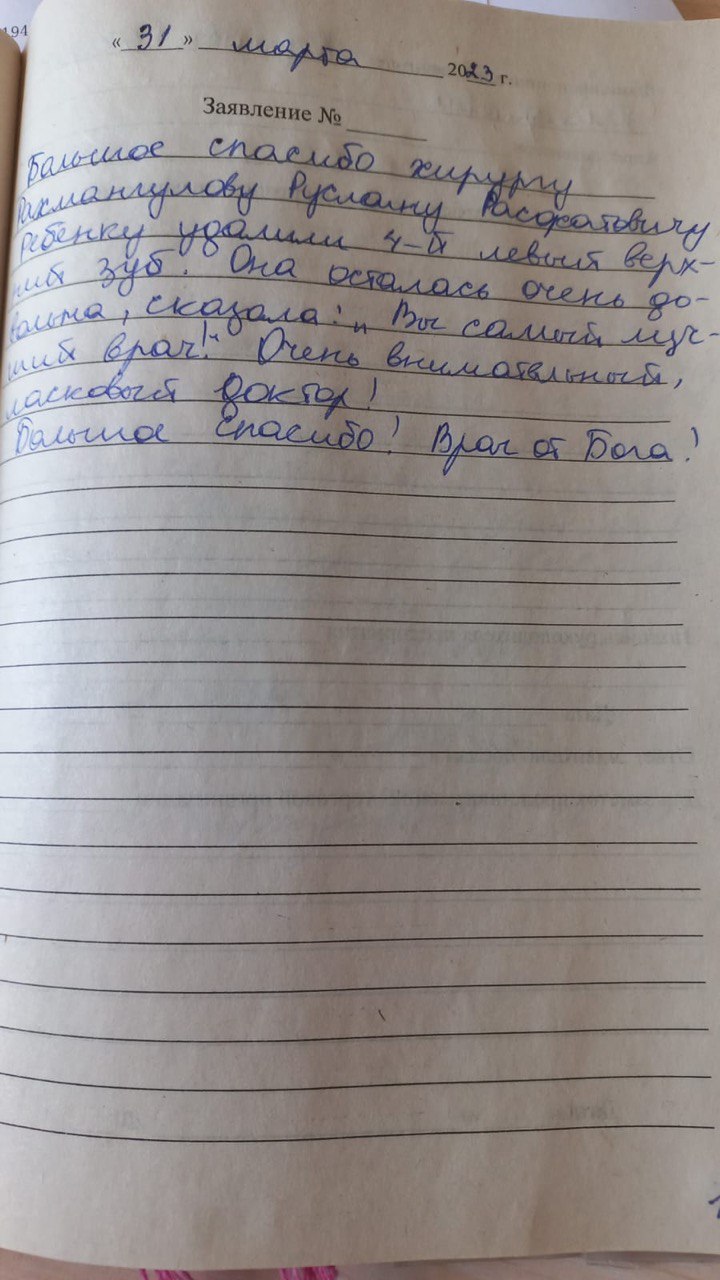 194
« 31 » марта 2023 г.
Заявление №
Большое спасибо хирургу
Рахмангулову Руслану Расфатовичу
Ребенку удалили 4-й левый верх-
ний зуб. Она осталась очень до-
вольна, сказала: „Вы самый луч-
ший врач!“ Очень внимательный,
ласковый доктор!
Большое спасибо! Врач от Бога!